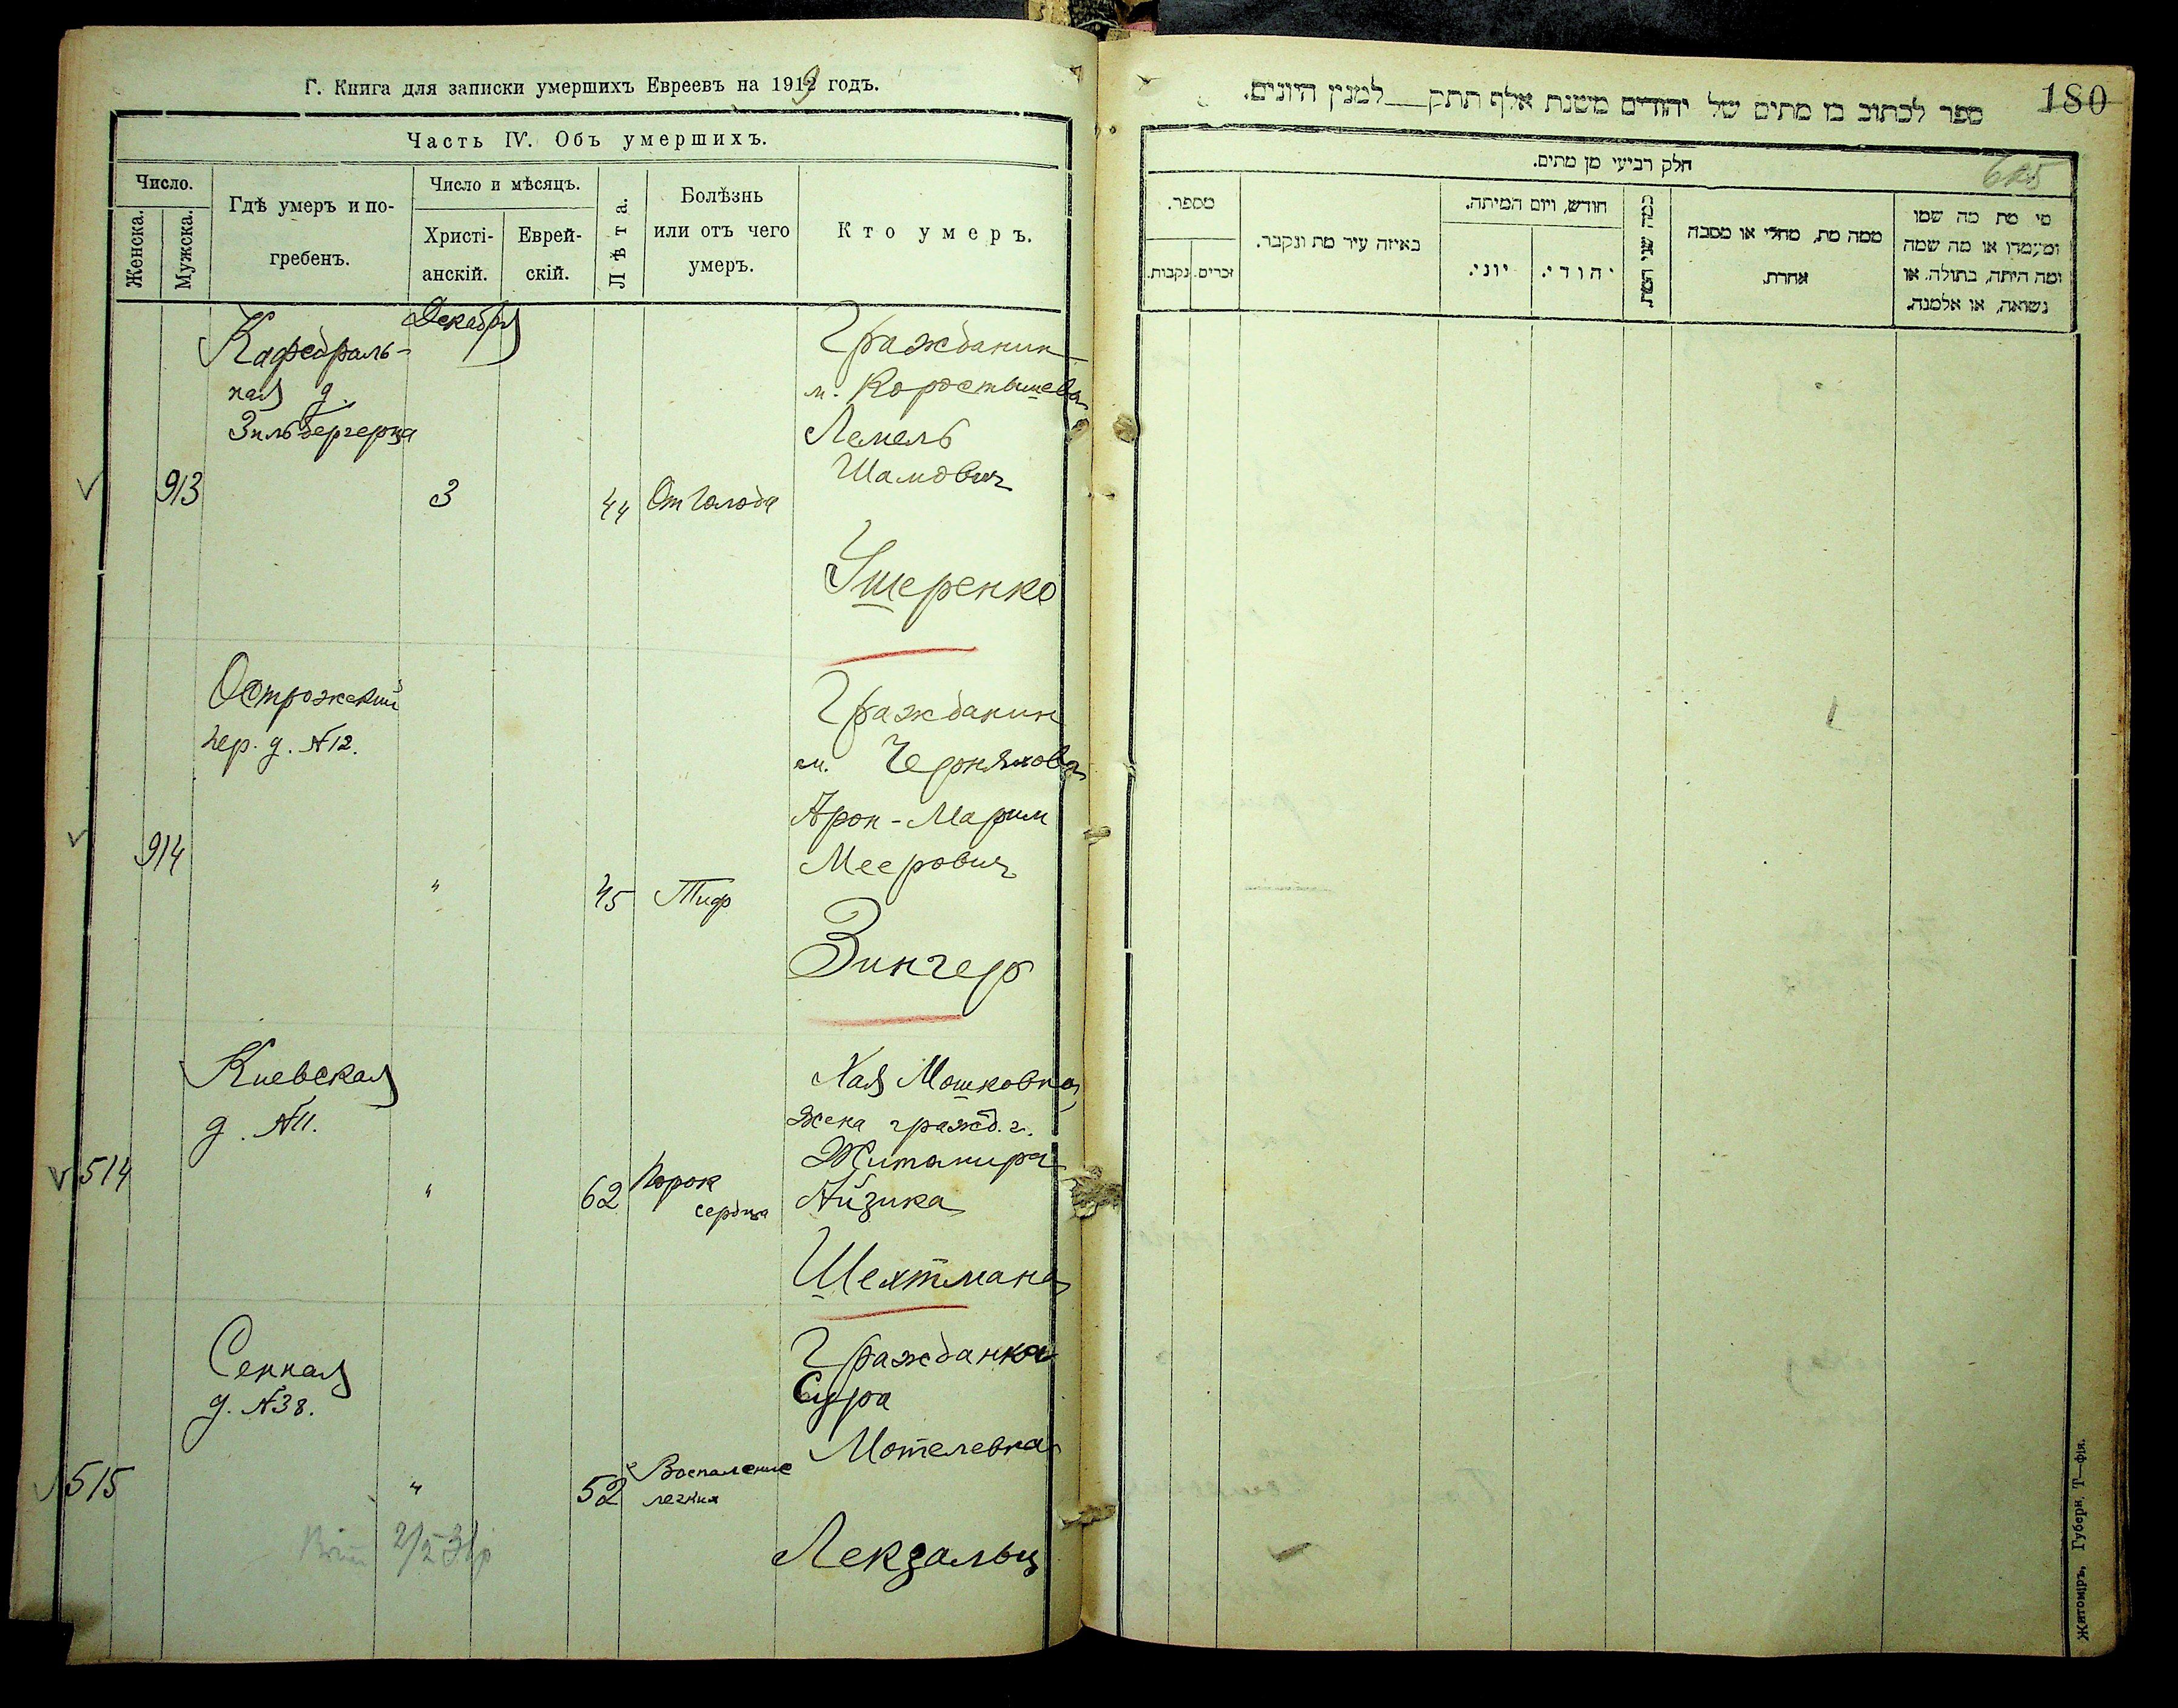 Г. Книга для записки умершихъ Евреевъ на 1919 годъ.
Часть IV. Объ умершихъ.
Число.
Женска.
Мужска.
Гдѣ умеръ и по-
гребенъ.
Число и мѣсяцъ.
Христі-
анскій.
Еврей-
скій.
Лѣта.
Болѣзнь
или отъ чего
умеръ.
Кто умеръ.
Декабря
Кафедраль-
ная д.
Зильбергерца
913
3
44
От голода
Гражданин
м. Коростышева
Лемель
Шамович
Ушеренко
Острожский
пер. д. №12.
914
"
45
Тиф
Гражданин
м. Черняхова
Арон-Марим
Меерович
Зингер
Киевская
д. №11.
514
"
62
Порок
сердца
Хая Мошковна
жена гражд. г.
Житомира
Айзика
Шехтмана
Сенная
д. №38.
515
"
52
Воспаление
легких
Гражданка
Сура
Мотелевна
Лекзальц
180
ספר לכתוב בו מתים של יהודים משנת אלף תתק__למנין היונים.
חלק רביעי מן מתים.
מספר.
זכרים.
נקבות.
באיזה עיר מת ונקבר.
חודש, ויום המיתה.
יוני.
יהודי.
כמה שני המת
ממה מת, מחלי או מסבה
אחרת.
מי מת מה שמו
ומעמדו או מה שמה
ומה היתה, בתולה. או
נשואה, או אלמנה.
Житоміръ, Губерн. Т—фія.